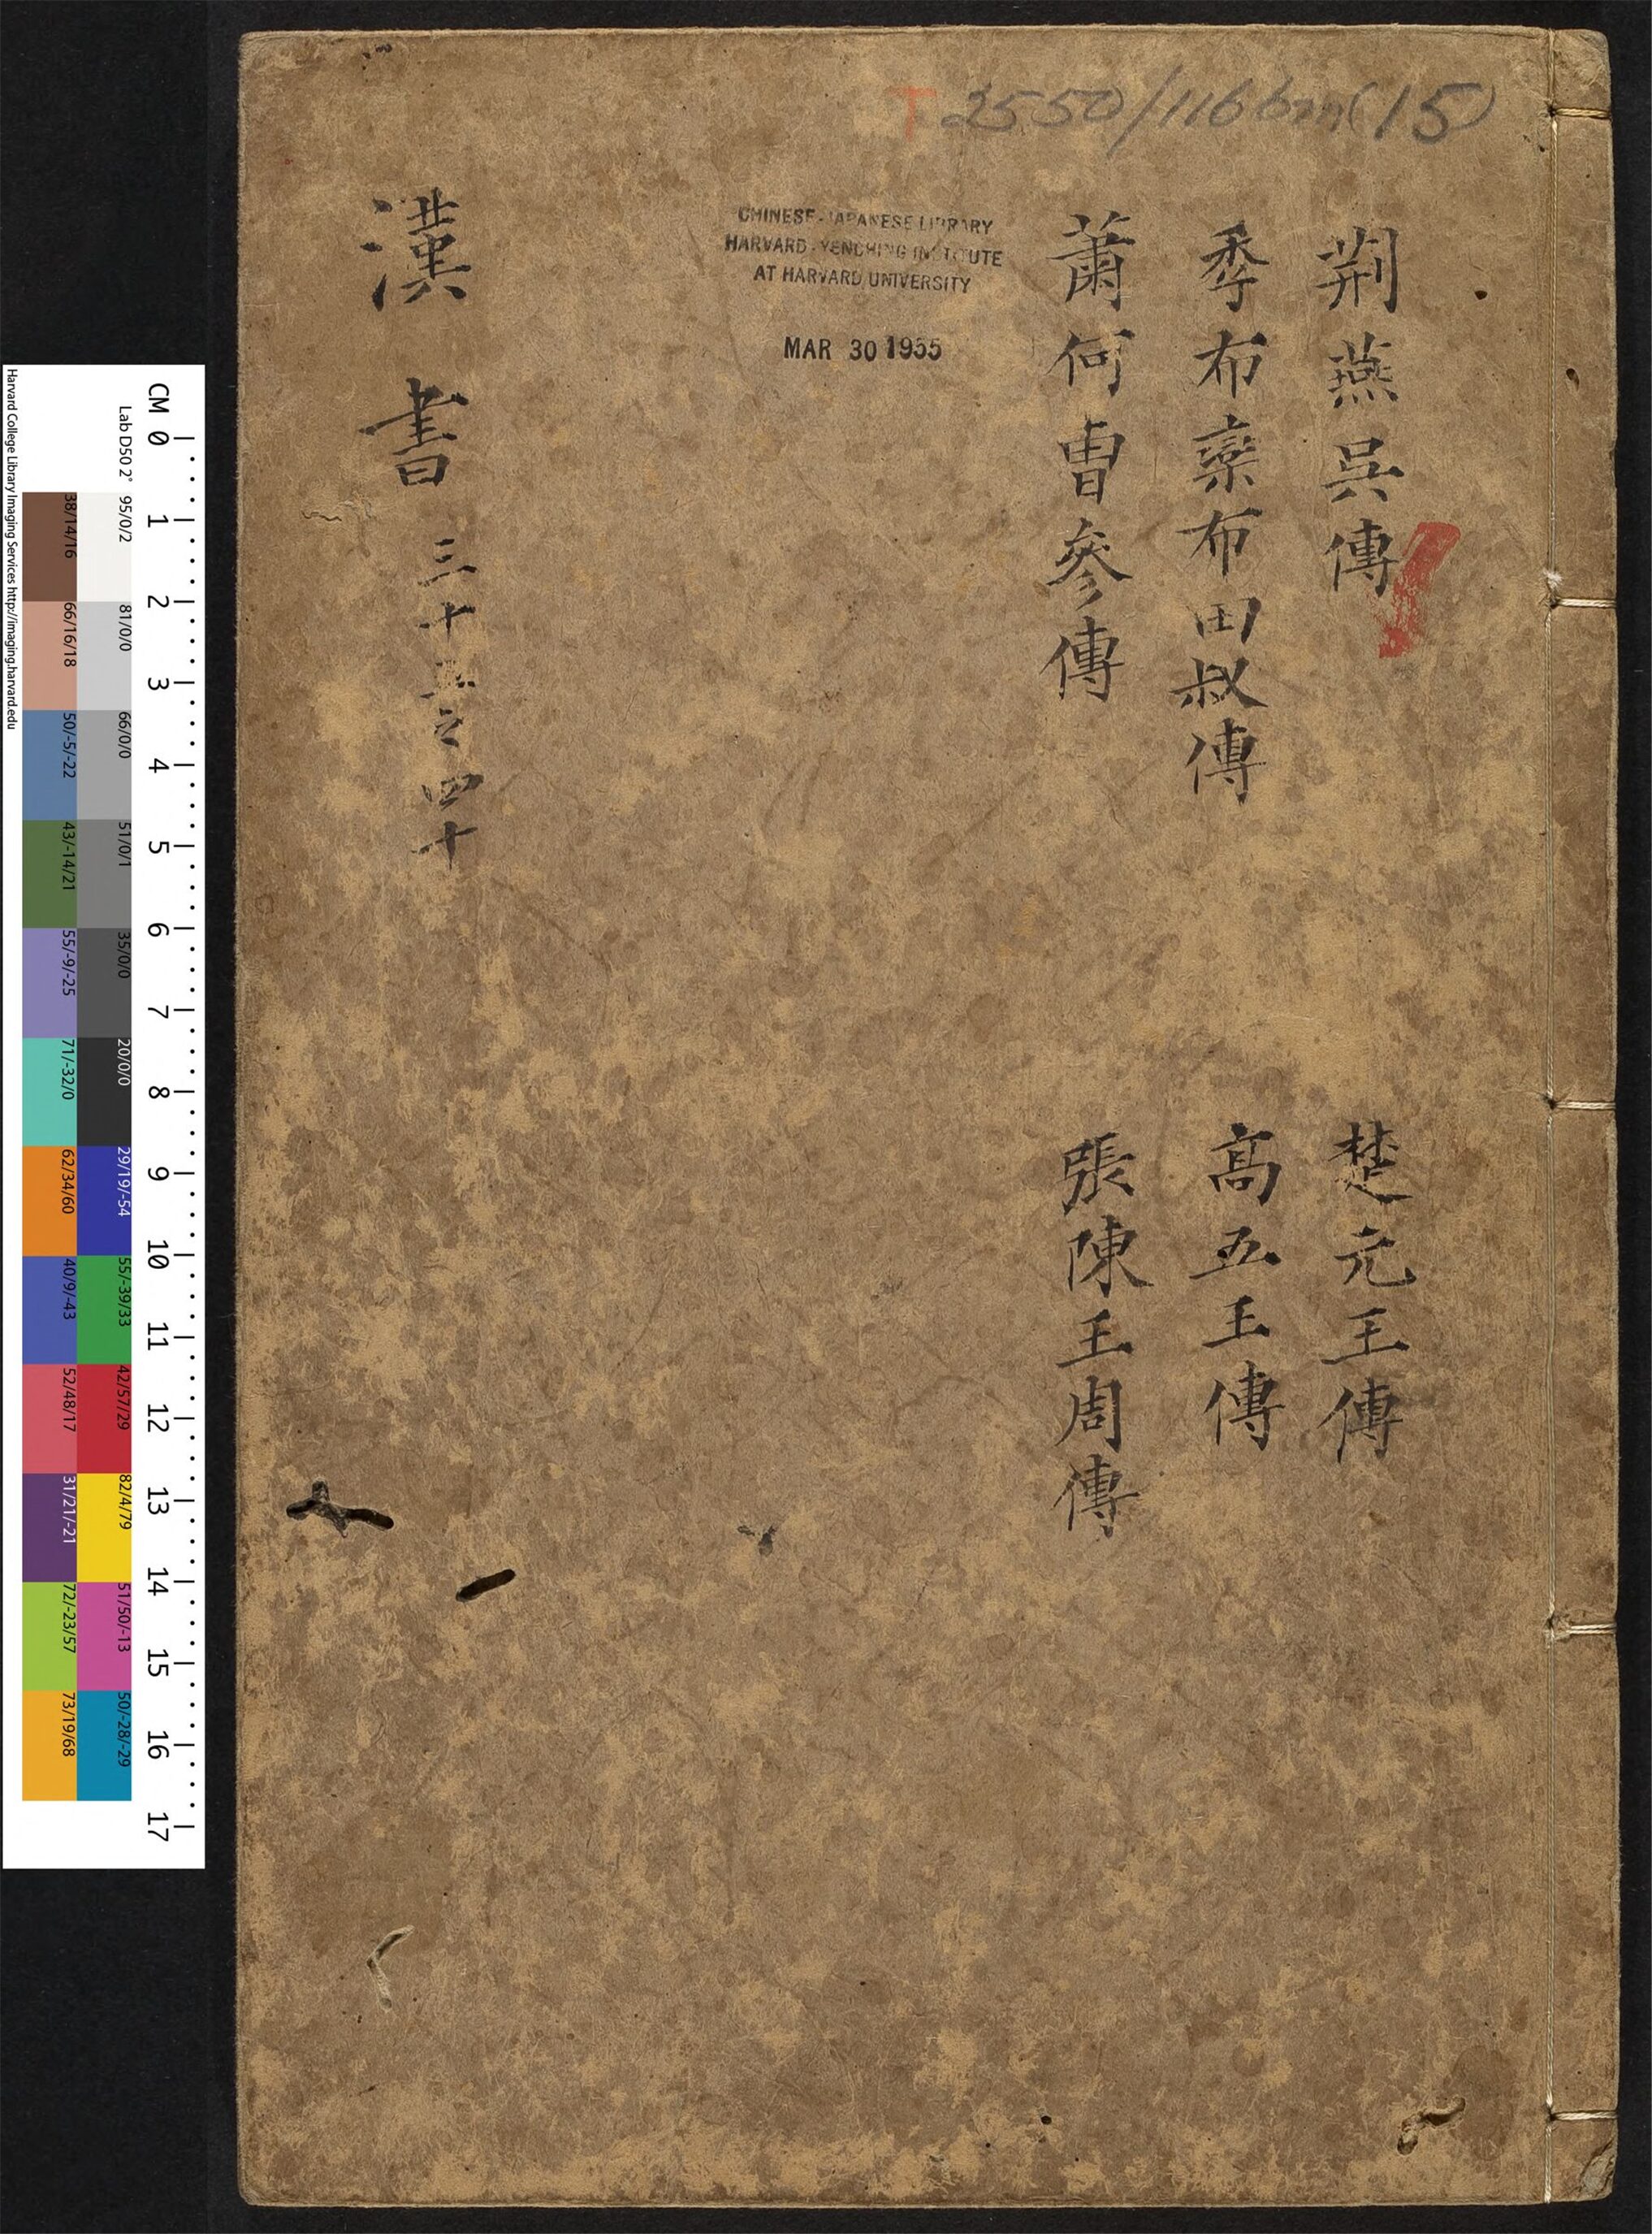 T 2550/1166m(15)
CHINESE-JAPANESE LIBRARY
HARVARD-YENCHING INSTITUTE
AT HARVARD UNIVERSITY
MAR 30 1955
荆燕吳傳
楚元王傳
季布欒布田叔傳
高五王傳
蕭何曺參傳
張陳王周傳
漢書 三十五之四十
CM 0 1 2 3 4 5 6 7 8 9 10 11 12 13 14 15 16 17
Lab D50 2° 95/0/2 81/0/0 66/0/0 51/0/1 35/0/0 20/0/0 29/19/-54 55/-39/33 42/57/29 82/4/79 51/50/-13 50/-28/-29
38/14/16 66/16/18 50/-5/-22 43/-14/21 55/-9/-25 71/-32/0 62/34/60 40/9/-43 52/48/17 31/21/-21 72/-23/57 73/19/68
Harvard College Library Imaging Services http://imaging.harvard.edu